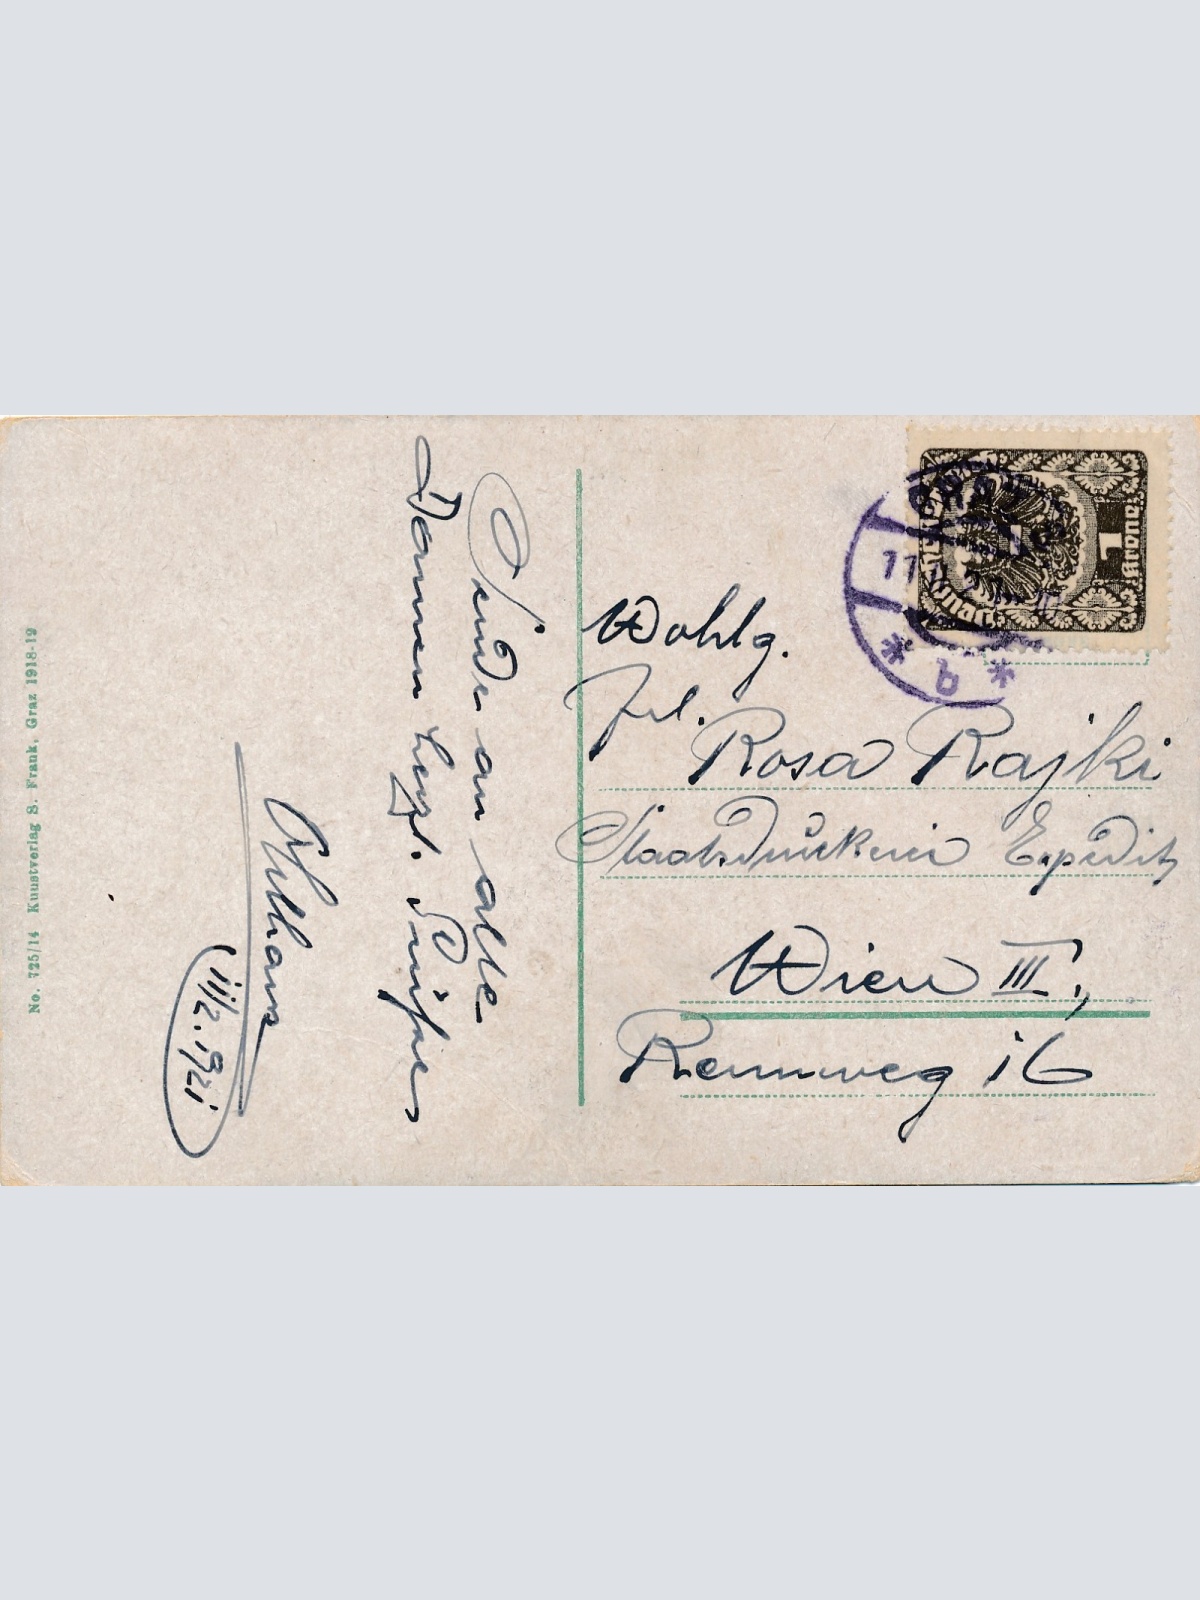 No. 725/14 Kunstverlag S. Frank, Graz 1918-19
Sende an alle
Damen herzl. Grüße
11/2.1921
1
Krone
11 II 21
* b *
Wohlg.
Frl.
Rosa Rajki
Staatsdruckerei Expedit
Wien III,
Rennweg 16